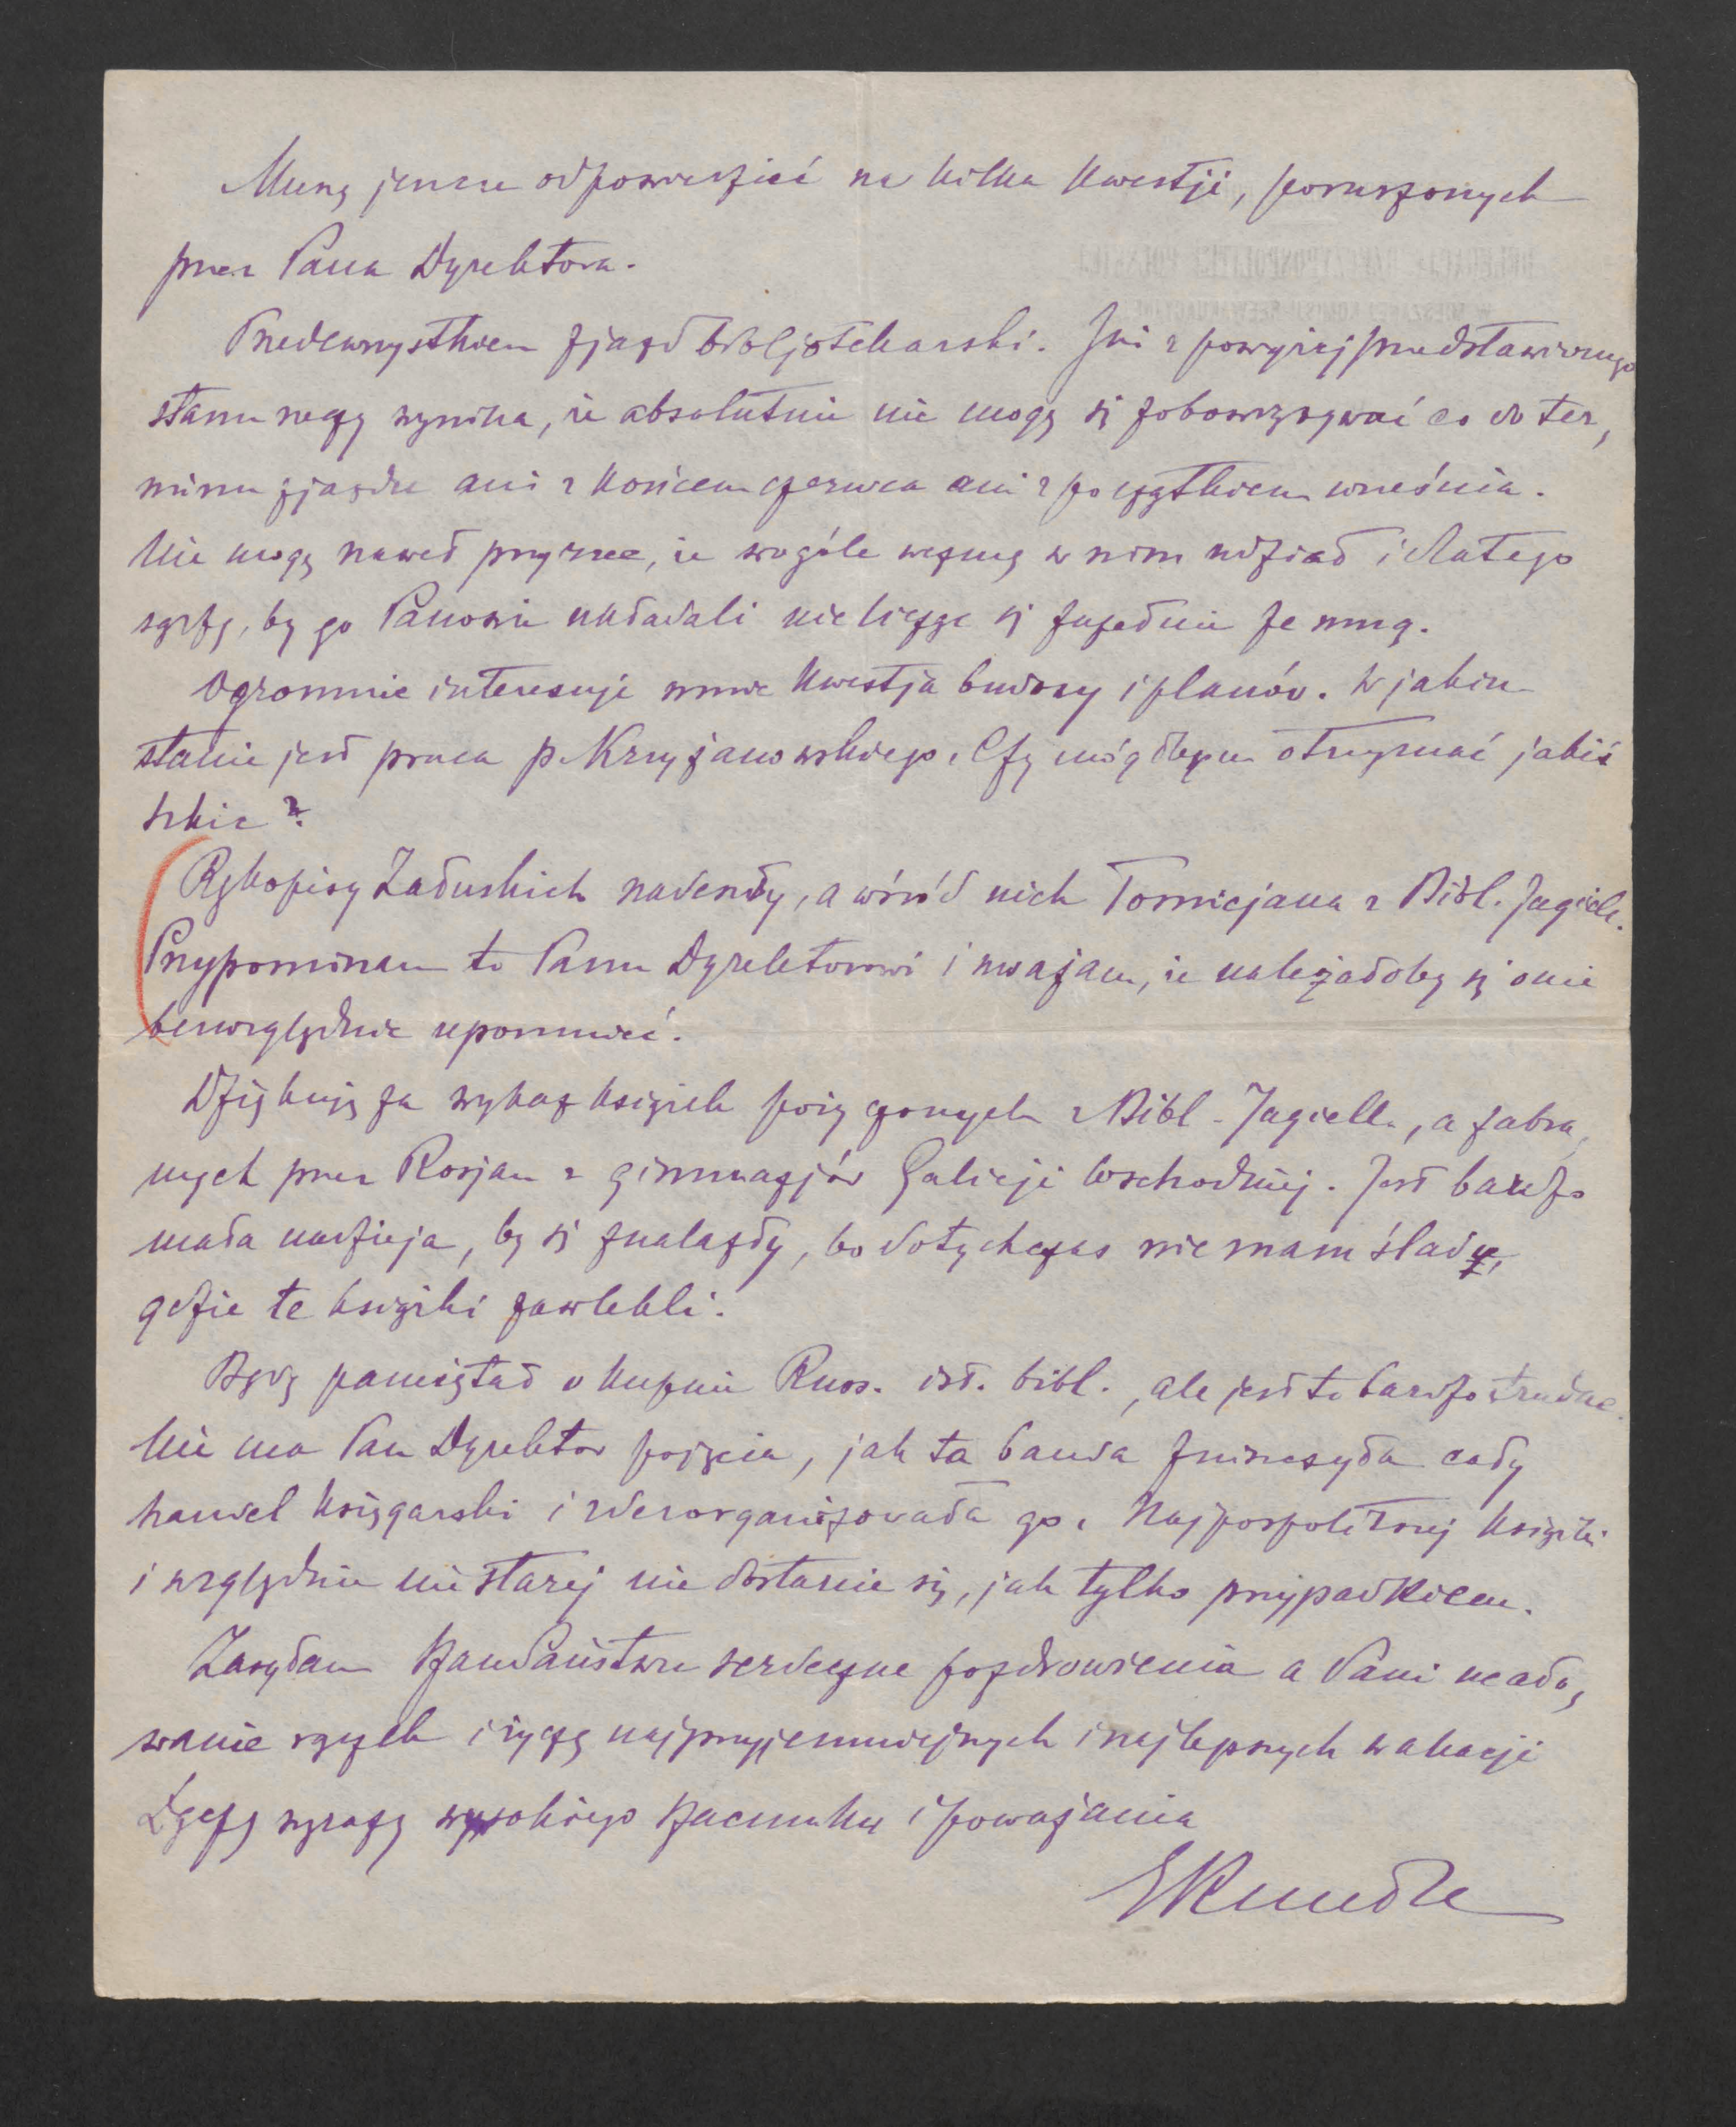 Muszę jeszcze odpowiedzieć na kilka kwestji, poruszonych
przez Pana Dyrektora.
Przedewszystkiem zjazd bibljotekarski. Już z powyżej przedstawionego
stanu rzeczy wynika, że absolutnie nie mogę się zobowiązywać co do ter-
minu zjazdu ani z końcem czerwca ani z początkiem września.
Nie mogę nawet przyrzec, że wogóle wezmę w nim udział i dlatego
sądzę, by go Panowie układali nie licząc się zupełnie ze mną.
Ogromnie interesuje mnie kwestja budowy i planów. W jakim
stanie jest praca p. Krzyżanowskiego. Czy mógłbym otrzymać jakiś
szkic?
Rękopisy Załuskich nadeszły, a wśród nich Tomicjana z Bibl. Jagiell.
Przypominam to Panu Dyrektorowi i uważam, że należałoby się o nie
bezwzględnie upomnieć.
Dziękuję za wykaz książek pożyczonych z Bibl. Jagiell., a zabra-
nych przez Rosjan z gimnazjów Galicji Wschodniej. Jest bardzo
mała nadzieja, by się znalazły, bo dotychczas nie mam śladu,
gdzie te książki zawlekli.
Będę pamiętał o kupnie Russ. ist. bibl., ale jest to bardzo trudne.
Nie ma Pan Dyrektor pojęcia, jak ta banda zniszczyła cały
handel księgarski i zdezorganizowała go. Najpospolitszej książki
i względnie nie starej nie dostanie się, jak tylko przypadkiem.
Zasyłam Szan. Państwu serdeczne pozdrowienia a Pani ucało-
wanie rączek i życzę najprzyjemniejszych i najlepszych wakacji
Łączę wyrazy wysokiego szacunku i poważania
EKuntze